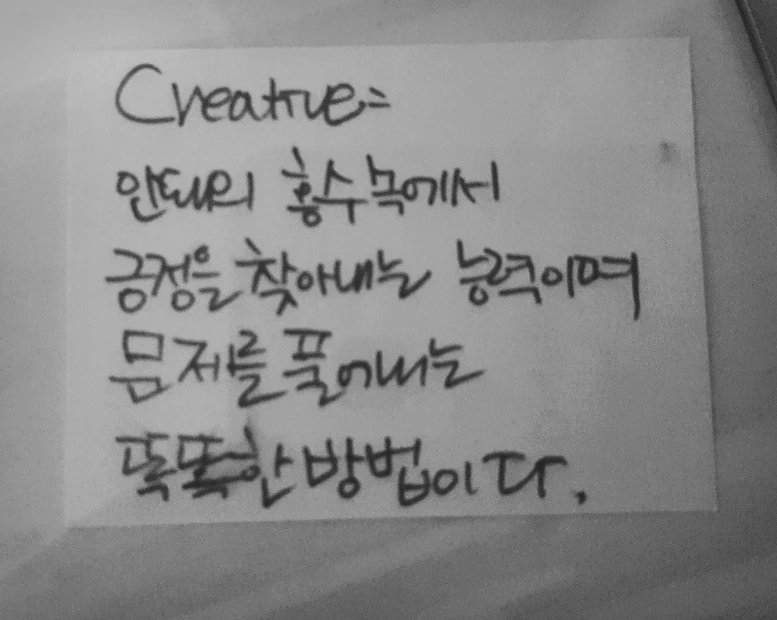 Creative=
안돼의 홍수 속에서
긍정을 찾아내는 능력이며
문제를 풀어내는
똑똑한 방법이다.